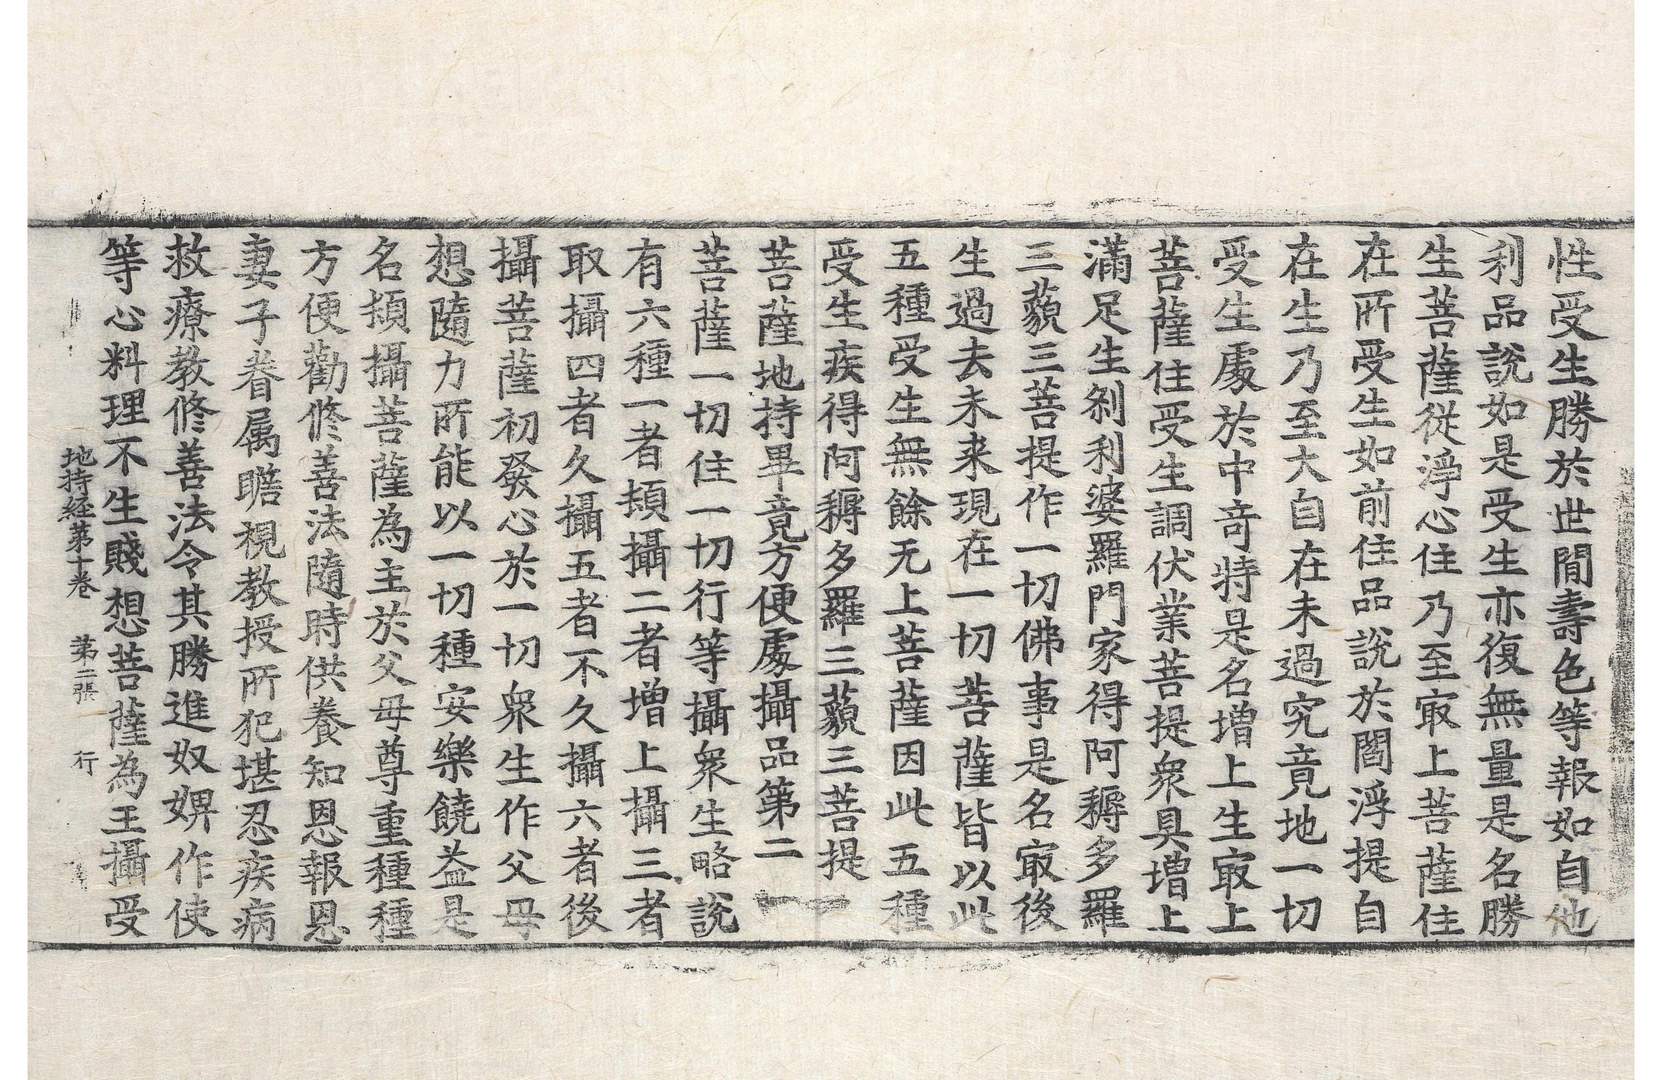 性受生勝於世間壽色等報如自他
利品說如是受生亦復無量是名勝
生菩薩從淨心住乃至㝡上菩薩住
在所受生如前住品說於閻浮提自
在生乃至大自在未過究竟地一切
受生處於中奇特是名增上生㝡上
菩薩住受生調伏業菩提衆具增上
滿足生剎利婆羅門家得阿耨多羅
三藐三菩提作一切佛事是名㝡後
生過去未来現在一切菩薩皆以此
五種受生無餘无上菩薩因此五種
受生疾得阿耨多羅三藐三菩提
菩薩地持畢竟方便處攝品第二
菩薩一切住一切行等攝衆生略說
有六種一者頓攝二者增上攝三者
取攝四者久攝五者不久攝六者後
攝菩薩初發心於一切衆生作父母
想隨力所能以一切種安樂饒益是
名頓攝菩薩為主於父母尊重種種
方便勸修善法隨時供養知恩報恩
妻子眷属瞻視教授所犯堪忍疾病
救療教修善法令其勝進奴婢作使
等心料理不生賤想菩薩為王攝受
地持経苐十卷　苐二張　行